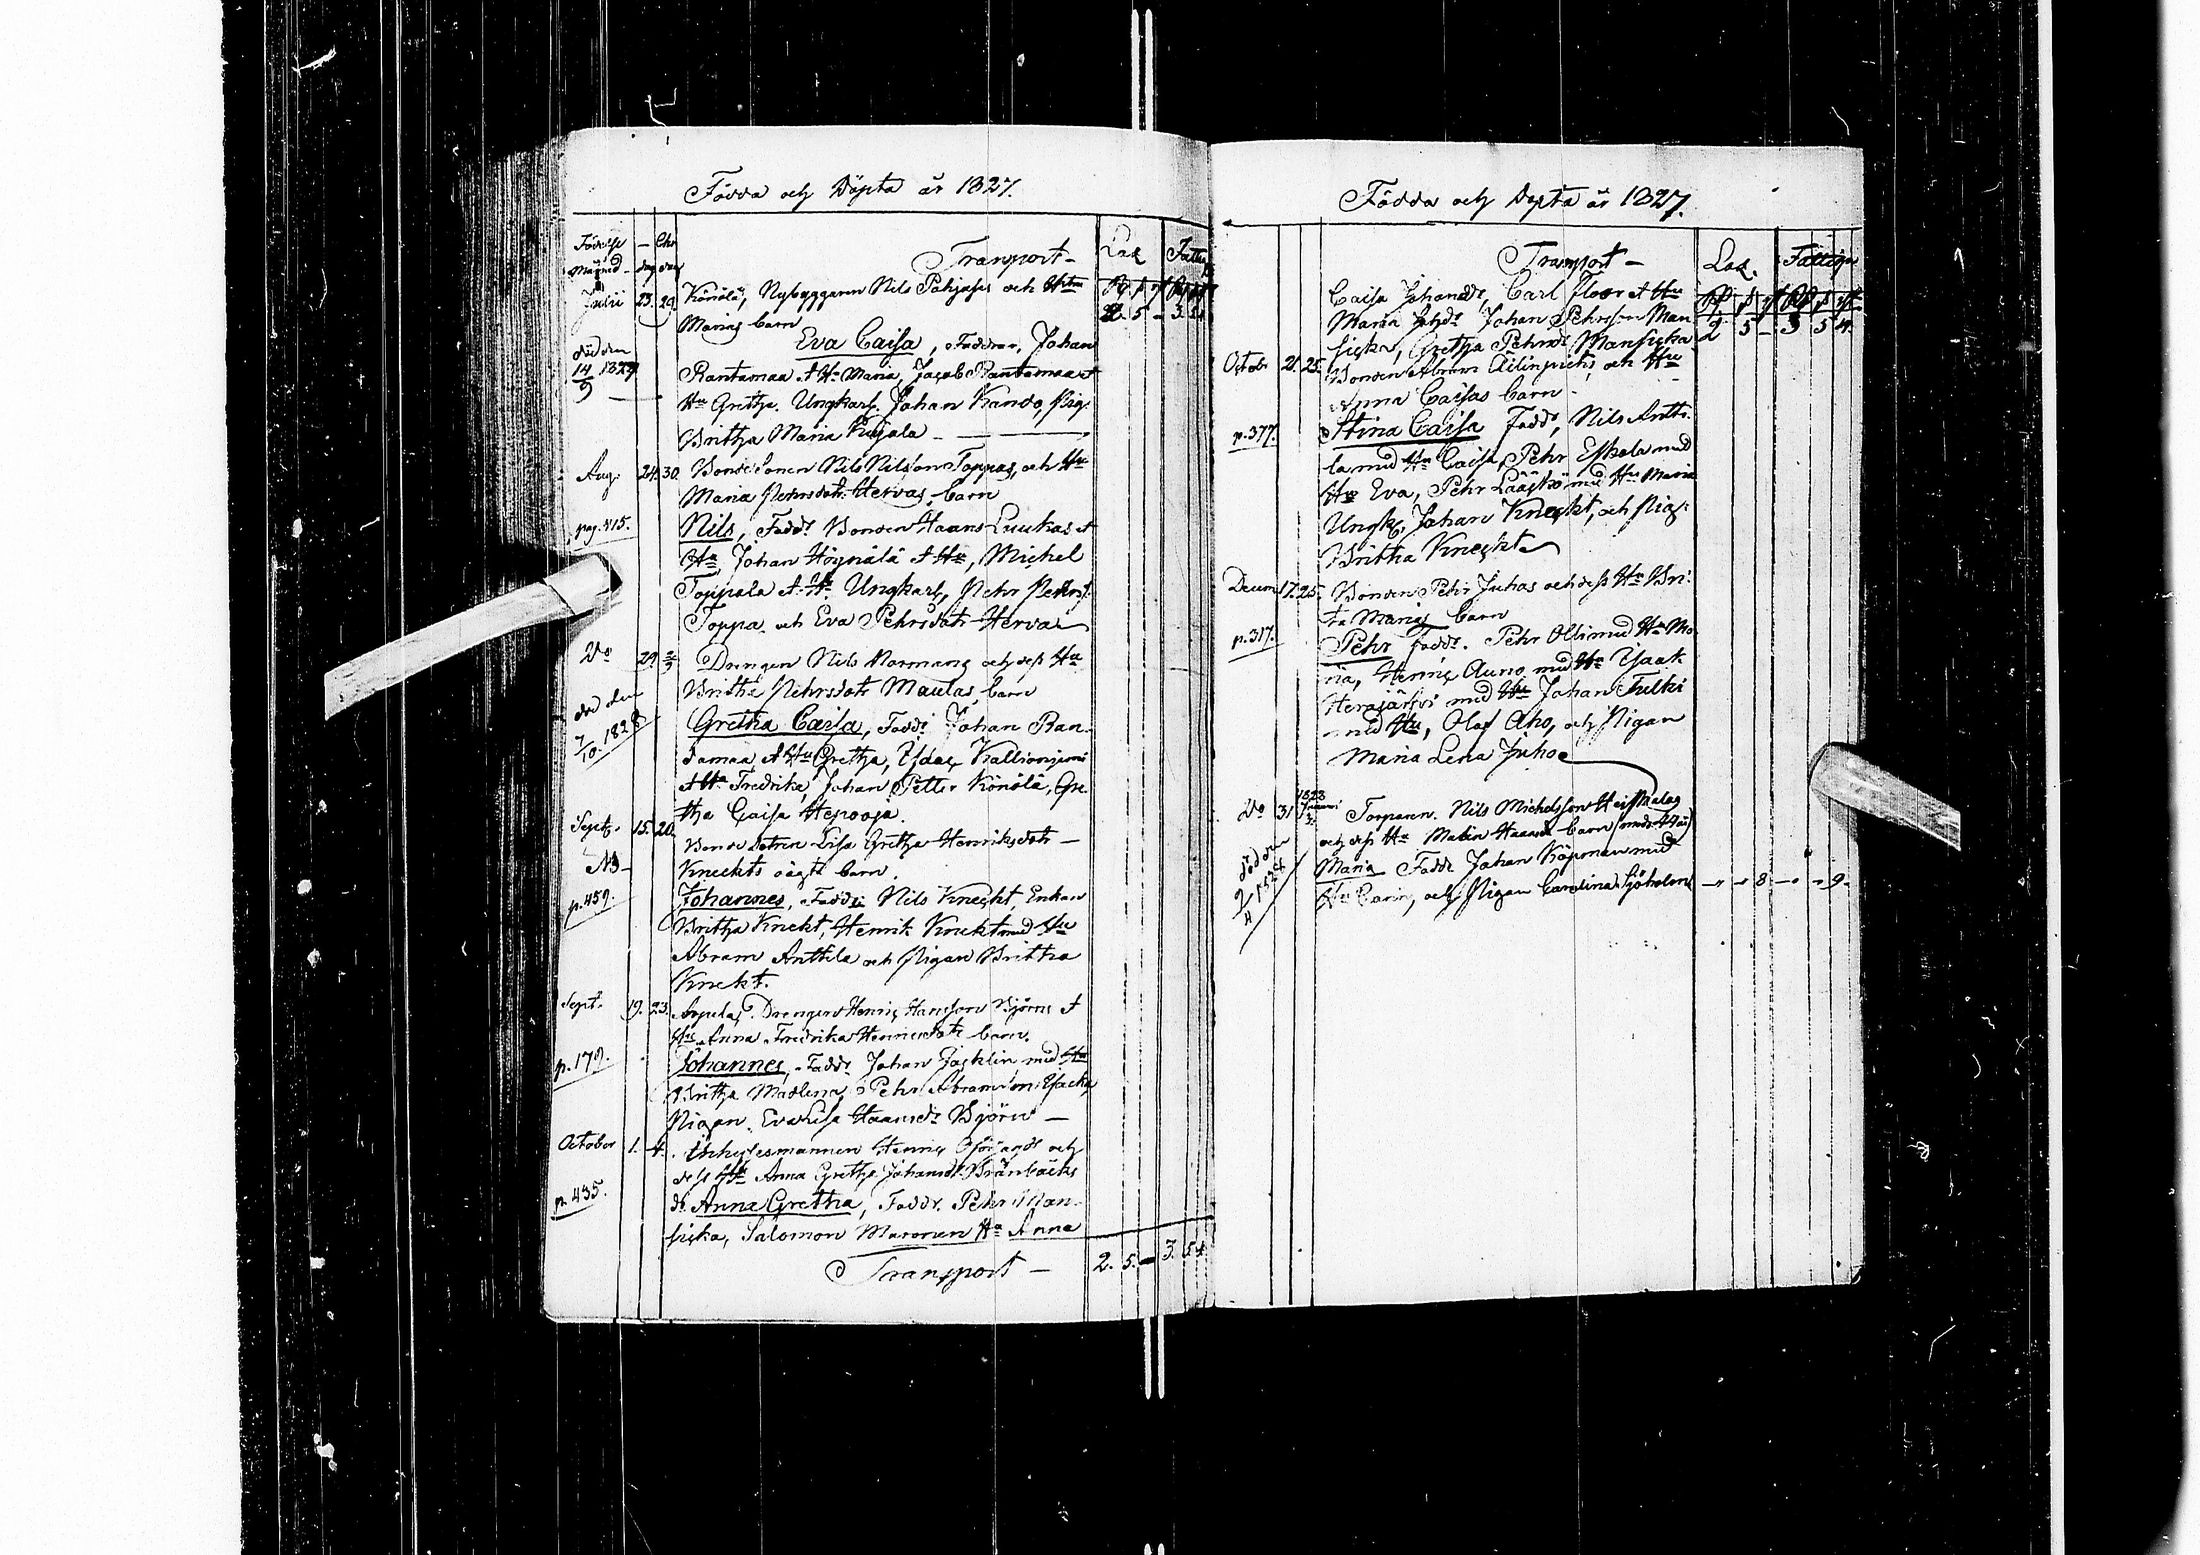 Födda och Döpta år 1827.
Födelse — Chr.
Månad — dag dag
Transport — Lak Fattig
Julii 23. 29. Könölä, Nybyggaren Nils Pohjas och Hu
Marias barn
2. 5 — 3. 54
Eva Caisa, Faddrar. Johan
död den
14/9 1829
Rantamaa et Hu Maria, Jacob Rantamaa et
Hu Gretha. Ungkarl. Johan Kando, Pig.
Britha Maria Kujala
Aug. 24. 30. Bonde Sonen Nils Nilsson Toppas, och Hu
Maria Pehrsdotr Hervas barn
pag. 415. Nils, Fadd. Bonden Haans Luukas et
Hu Johan Högnälä et Hu, Michel
Toppala et Hu Ungkarl, Pehr Pehrs.
Toppa och Eva Pehrsdotr Herva
Do 29. Drengen Nils Normans och dess Hu
Britha Pehrsdotr Maulas barn
död den
7/10. 1828
Gretha Caisa, Fadd. Johan Ran-
tamaa, et Hu Gretha, Isaac Kallioniemi
et Hu Fredrika, Johan Petter Könölä, Gre
tha Caisa Hepooja.
Sept. 15. 20. Bonde Dotren Lisa Gretha Henriksdotr —
NB Knekts oägta barn.
p. 459. Johannes, Fadd. Nils Knecht, Enkan
Britha Knekt, Henrik Knekt med Hu
Abram Anttila och Pigan Britha
Knekt.
Sept. 19. 23. Arpela, Drengen Henric Hansson Björns et
Hu Anna Fredrika Henricsdotr barn.
p. 179. Johannes, Fadd. Johan Jacklin med Hu
Britha Madlena, Pehr Abramson
Pigan. Eva Lisa Haansdr Björn —
October 1. 4. Henric och
dess Hu Anna Gretha Johansdr Bränbäcks
p. 435. dr. Anna Gretha, Fadd. Pehr Man-
sicka, Salomon Maronen Hu Anna
Transport — 2. 5. — 3. 54.
Födda och Döpta år 1827.
Transport — Lak. Fattiga
Caisa Johansdr, Carl Floor et Hu
Maria Johan Pehrsson Man
2 5 — 3 5 4.
sicka, Gretha Pehrsdr Mansicka
Octobr 21. 25. Bonden Abram Äilinpieks och Hu
Anna Caisas barn.
p. 377. Stina Caisa Fadd, Nils Antti
la med Hu Caisa, Pehr Eskola med
Hu Eva, Pehr Lääskö med Hu Maria
Ungk. Johan Knecht, och Pig.
Britha Knecht
Decem 17. 25. Bonden Pehr Juhas och dess Hu Bri
ta Marias barn
p. 317. Pehr fadd. Pehr Olli med Hu Ma
ria, Henric Auno med Hu Isaak
Herajärfvi med Hu Johan Tulki
med Hu, Olof Aho, och Pigan
Maria Lena Juho
Do 31 1828 Januari 3. Torparen. Nils Michelsson Heiskalas
och dess Hu Malin Haansd. barn
död den
2/4 1828
Maria Fadd. Johan Köpman med
Hu Carin, och Pigan Carolina Sjöholm — 8 — 9